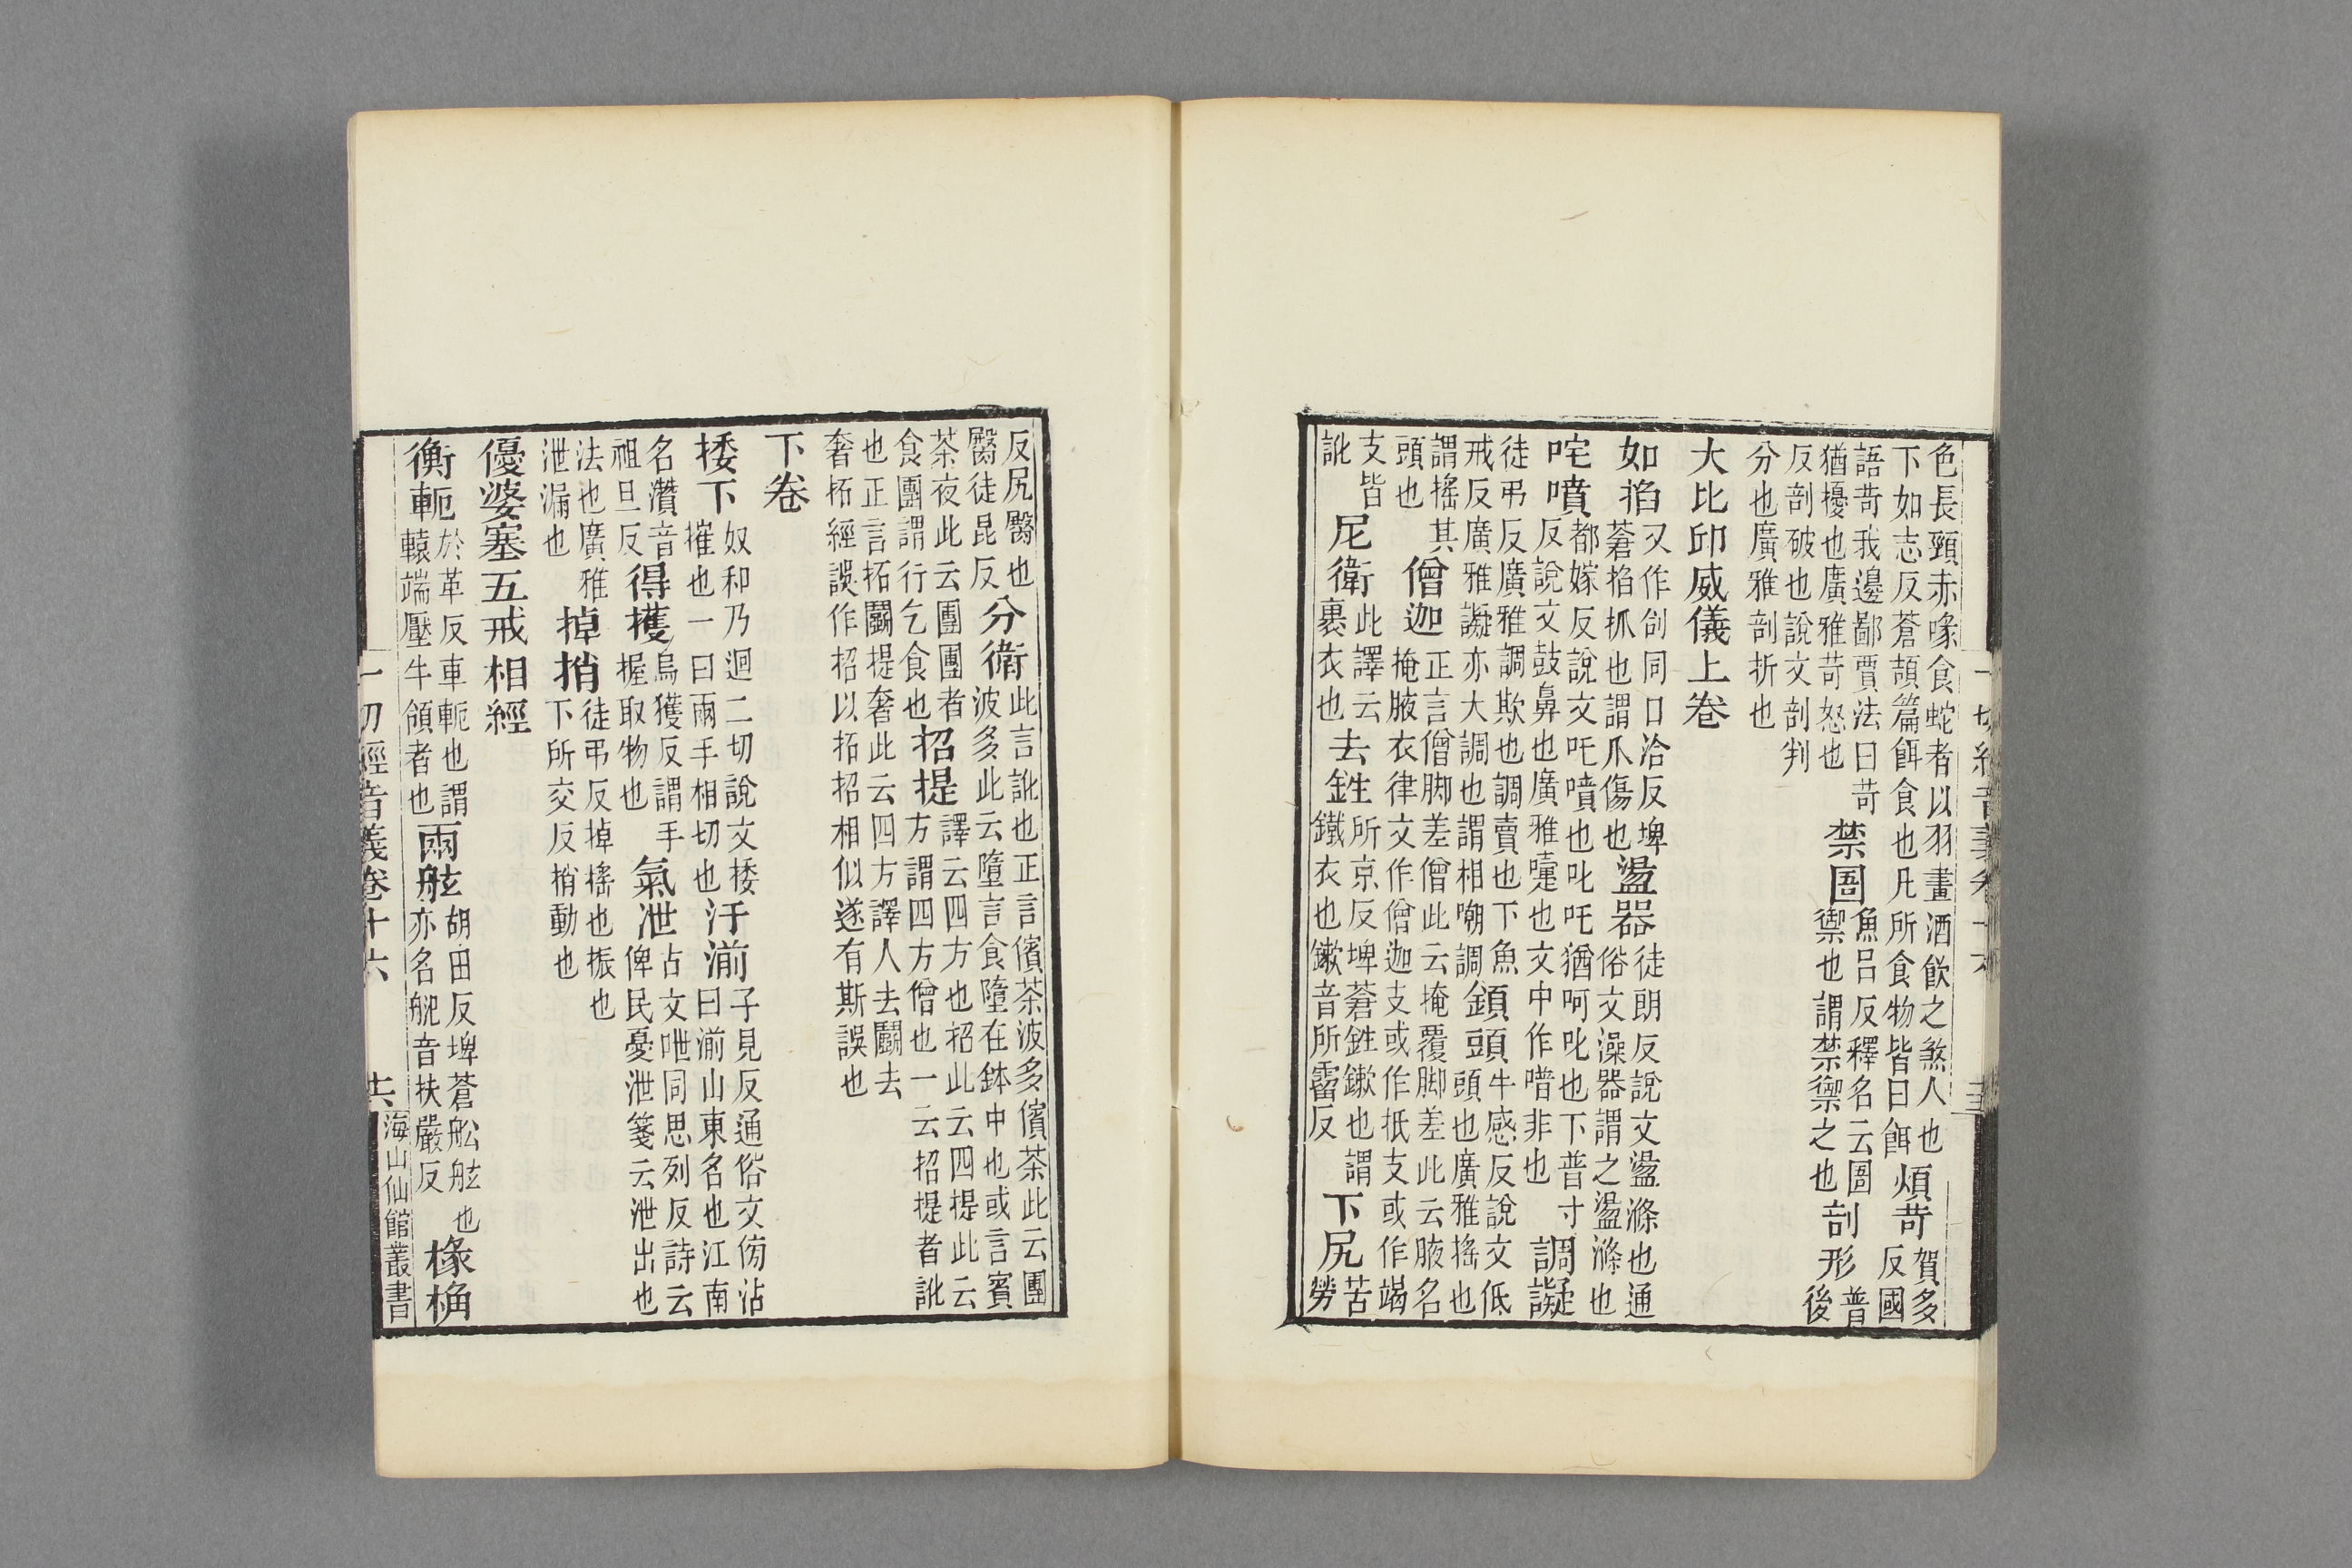 色長頸赤喙食蛇者以羽畫酒飲之煞人也下如志反蒼頡篇餌食也凡所食物皆曰餌煩苛賀多反國
語苛我邊鄙賈法曰苛猶擾也廣雅苛怒也禁圄魚呂反釋名云圄禦也謂禁禦之也剖形普後
反剖破也說文剖判分也廣雅剖折也
大比卬威儀上卷
如掐又作㓣同口洽反埤蒼掐抓也謂爪傷也盪器徒朗反說文盪滌也通俗文澡器謂之盪滌也
咤噴都嫁反說文吒噴也叱吒猶呵叱也下普寸反說文鼓鼻也廣雅嚏也文中作唶非也調譺
徒弔反廣雅調欺也調賣也下魚戒反廣雅譺亦大調也謂相嘲調顉頭牛感反說文低頭也廣雅搖也
謂搖其頭也僧迦正言僧脚差僧此云掩覆脚差此云腋名掩腋衣律文作僧迦支或作祇支或作竭
支皆訛尼衛此譯云裹衣也去鉎所京反埤蒼鉎鏉也謂鐵衣也鏉音所霤反下尻苦勞
反尻臀也臀徒昆反分衛此言訛也正言儐茶波多儐茶此云團波多此云墮言食墮在鉢中也或言賓
茶夜此云團團者食團謂行乞食也招提譯云四方也招此云四提此云方謂四方僧也一云招提者訛
也正言拓鬭提奢此云四方譯人去鬭去奢柘經誤作招以拓招相似遂有斯誤也
下卷
捼下奴和乃迴二切說文捼摧也一曰兩手相切也汙湔子見反通俗文傍沾曰湔山東名也江南
名灒音祖旦反得擭烏獲反謂手握取物也氣泄古文呭同思列反詩云俾民憂泄箋云泄出也
法也廣雅泄漏也掉捎徒弔反掉搖也振也下所交反捎動也
優婆塞五戒相經
衡軛於革反車軛也謂轅端壓牛領者也兩舷胡田反埤蒼舩舷也亦名舧音扶嚴反椽桷
一切經音義卷十六
海山仙館叢書